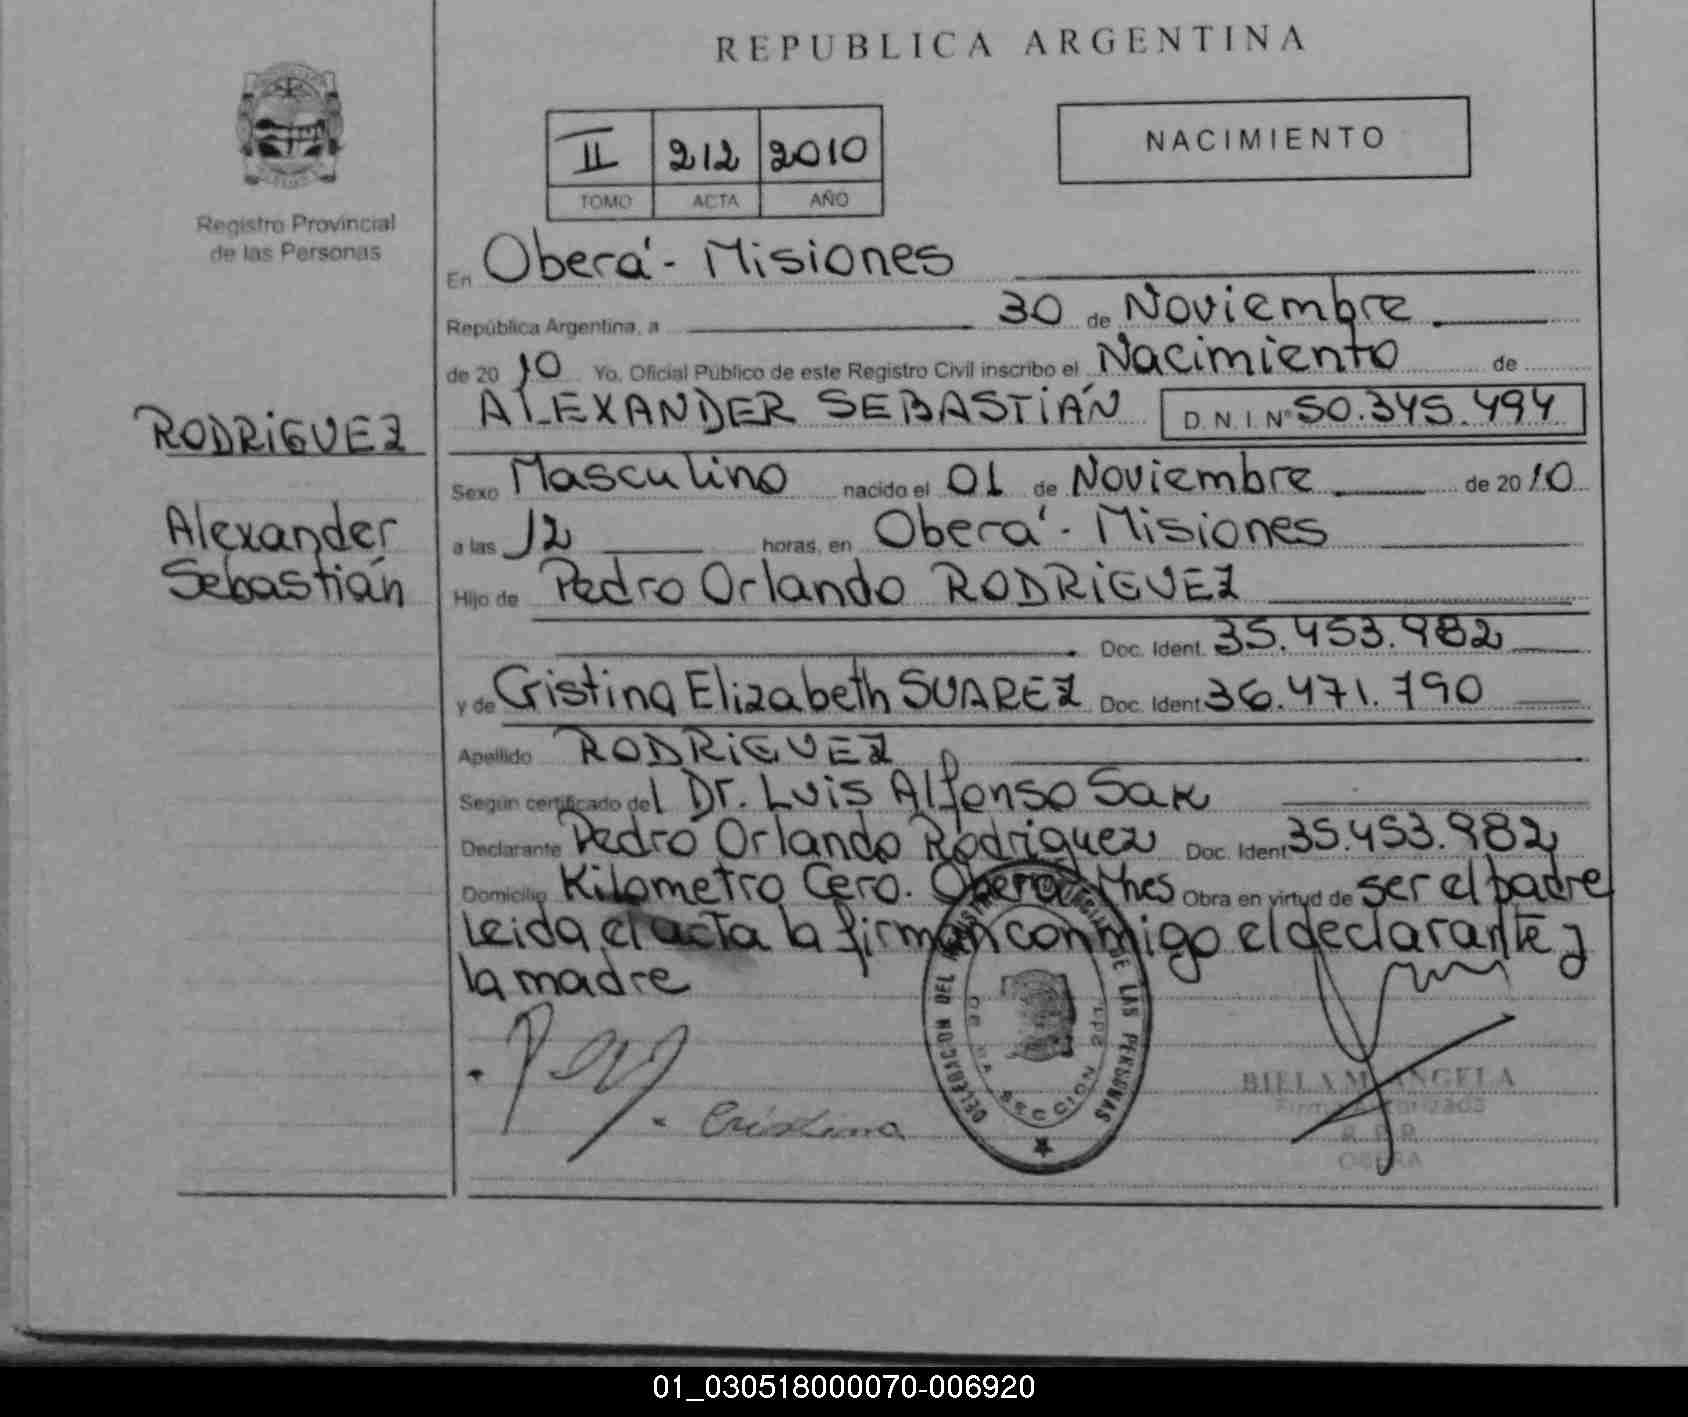 REPUBLICA ARGENTINA
II 212 2010
TOMO ACTA AÑO
NACIMIENTO
Registro Provincial
de las Personas
En Oberá - Misiones
República Argentina, a 30 de Noviembre
de 2010 Yo, Oficial Público de este Registro Civil inscribo el Nacimiento de
ALEXANDER SEBASTIÁN D.N.I. Nº 50.345.494
RODRIGUEZ
Alexander
Sebastián
Sexo Masculino nacido el 01 de Noviembre de 2010
a las 12 horas, en Oberá - Misiones
Hijo de Pedro Orlando RODRIGUEZ
Doc. Ident. 35.453.982
y de Cristina Elizabeth SUAREZ Doc. Ident. 36.471.790
Apellido RODRIGUEZ
Según certificado del Dr. Luis Alfonso Sak
Declarante Pedro Orlando Rodriguez Doc. Ident 35.453.982
Domicilio Kilometro Cero. Oberá Mnes Obra en virtud de ser el padre
Leida el acta la firman conmigo el declarante y
la madre
Cristina
DELEGACION DEL REGISTRO PROVINCIAL DE LAS PERSONAS
SECCION
BIELA M ANGELA
Firma Autorizada
R. P. P.
OBERA
01_030518000070-006920